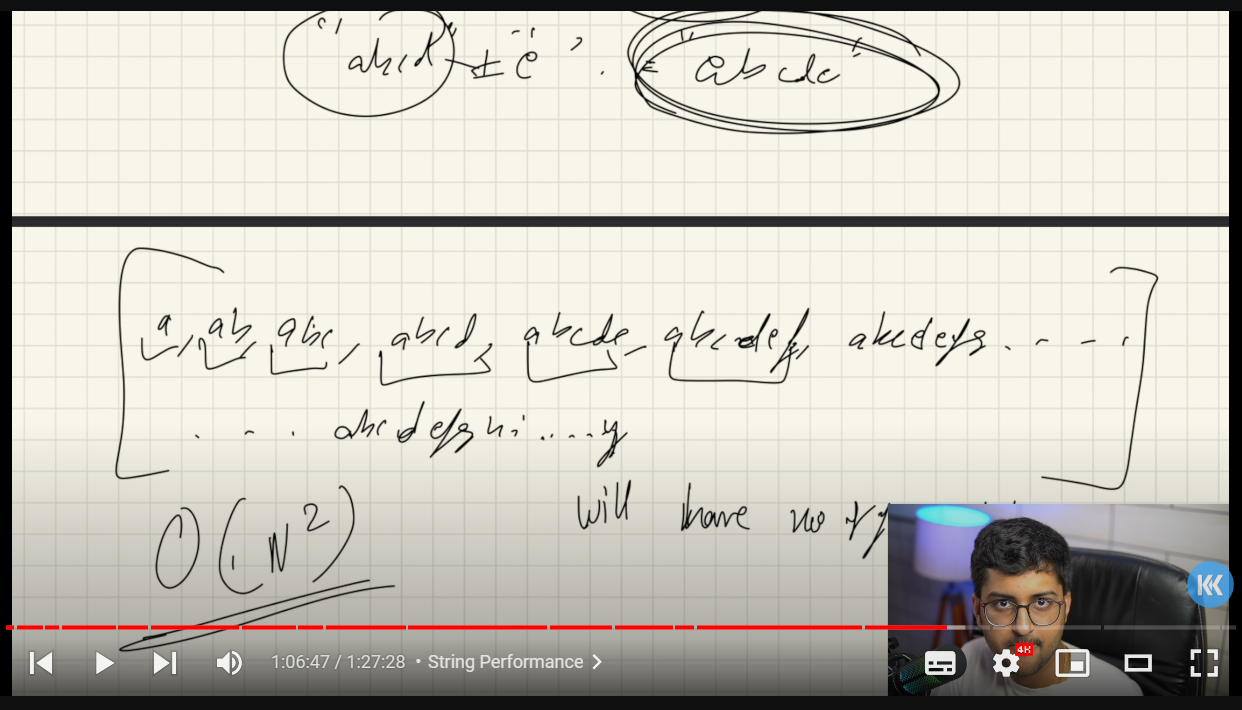 "abcd" + 'e' = "abcde"
a, ab, abc, abcd, abcde, abcdef, abcdefg . - - .
. - . abcdefghi....y
O(N²)
will have no
1:06:47 / 1:27:28 • String Performance
4K